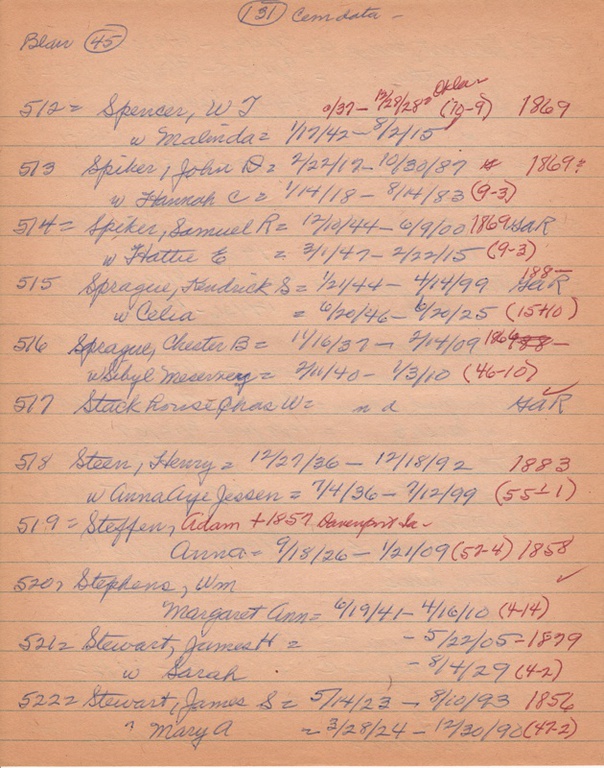 131 Cem data -
Blair 45
512 = Spencer, W T 2/37 - 12/28/28 = Okla (10-9) 1869
w Malinda = 1/17/42 - 8/2/15
513 Spiker, John D = 2/22/17 - 10/30/87 1869 =
w Hannah C = 1/14/18 - 8/14/83 (9-3)
514 = Spiker, Samuel R = 12/10/44 - 6/9/00 1869 GaR
w Hattie E = 3/1/47 - 2/22/15 (9-3)
515 Sprague, Kendrick S = 1/21/44 - 4/14/99 188- GaR
w Celia = 6/20/46 - 6/20/25 (15+10)
516 Sprague, Chester B = 11/16/37 - 2/14/09 186
w Sibyl Meservey = 2/11/40 - 1/3/10 (46-10)
517 Stackhouse Chas W = n d GaR
518 Steen, Henry = 12/27/36 - 12/18/92 1883
w Anna Jessen = 7/4/36 - 7/12/99 (55-1)
519 = Steffen, Adam + 1857 Davenport Ia -
Anna = 9/18/26 - 1/21/09 (57-4) 1858
520, Stephens, Wm
Margaret Ann = 6/19/41 - 4/16/10 (4-14)
521 = Stewart, James H = - 5/22/05 - 1879
w Sarah - 8/4/29 (4-2)
522 = Stewart, James S = 5/14/23 - 8/10/93 1856
" Mary A = 3/28/24 - 12/30/90 (47-2)